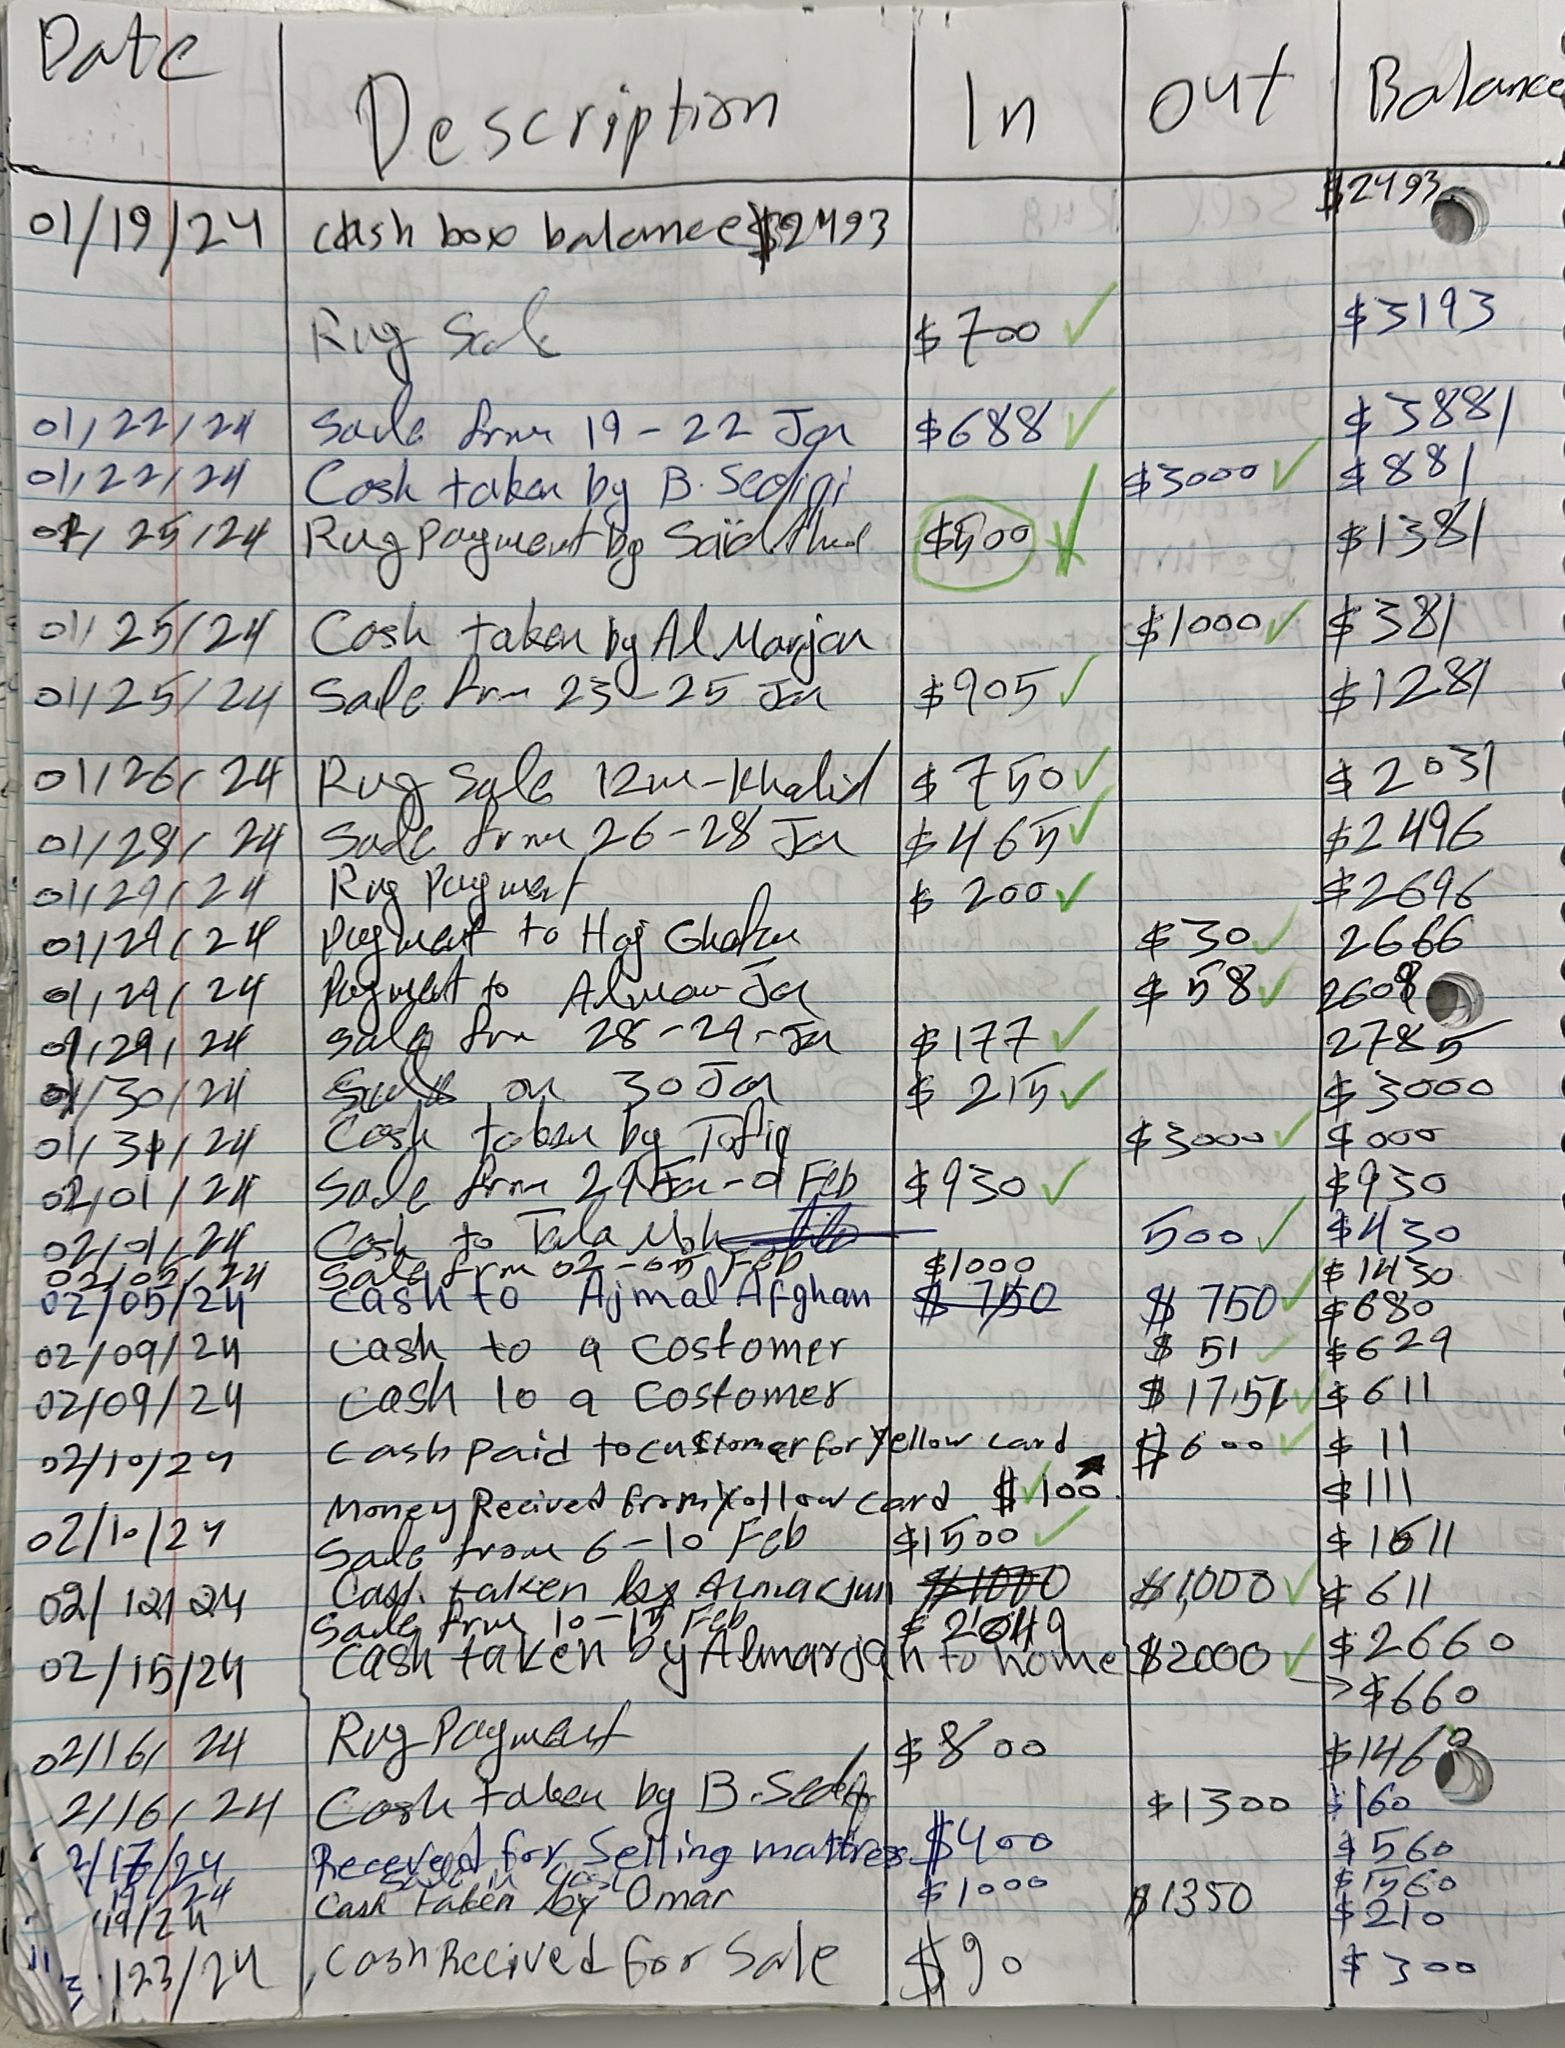 Date Description In Out Balance
01/19/24 Cash box balance $2493 $2493
Rug Sale $700 $3193
01/22/24 Sale from 19-22 Jan $688 $3881
01/22/24 Cash taken by B. Sediqi $3000 $881
01/25/24 Rug Payment by Said $500 $1381
01/25/24 Cash taken by Al Marjan $1000 $381
01/25/24 Sale from 23-25 Jan $905 $1281
01/26/24 Rug Sale 12m-Khalid $750 $2031
01/28/24 Sale from 26-28 Jan $465 $2496
01/29/24 Rug Payment $200 $2696
01/29/24 Payment to Haj $30 2666
01/29/24 Payment to $58 2608
01/29/24 Sale from 28-29-Jan $177 2785
01/30/24 Sale on 30 Jan $215 $3000
01/31/24 Cash taken by Tofiq $3000 $000
02/01/24 Sale from 29 Jan-01 Feb $930 $930
02/01/24 Cash to 500 $430
02/05/24 Sale from 02-05 Feb $1000 $1430
02/05/24 Cash to Ajmal Afghan $750 $750 $680
02/09/24 Cash to a Costomer $51 $629
02/09/24 Cash to a Costomer $17.51 $611
02/10/24 Cash paid to customer for Yellow card $600 $11
Money Recived from Yollow card $100 $111
02/10/24 Sale from 6-10 Feb $1500 $1611
02/12/24 Cash taken by Almarjan $1000 $1,000 $611
Sale from 10-15 Feb $2049 $2660
02/15/24 Cash taken by Almarjan to home $2000 → $660
02/16/24 Rug Payment $800 $1460
2/16/24 Cash taken by B. Sediqi $1300 $160
2/17/24 Receved for Selling mattres $400 $560
19/24 Sale in Cash $1000 $1560
19/24 Cash taken by Omar $1350 $210
/23/24 Cash Recived for Sale $90 $300